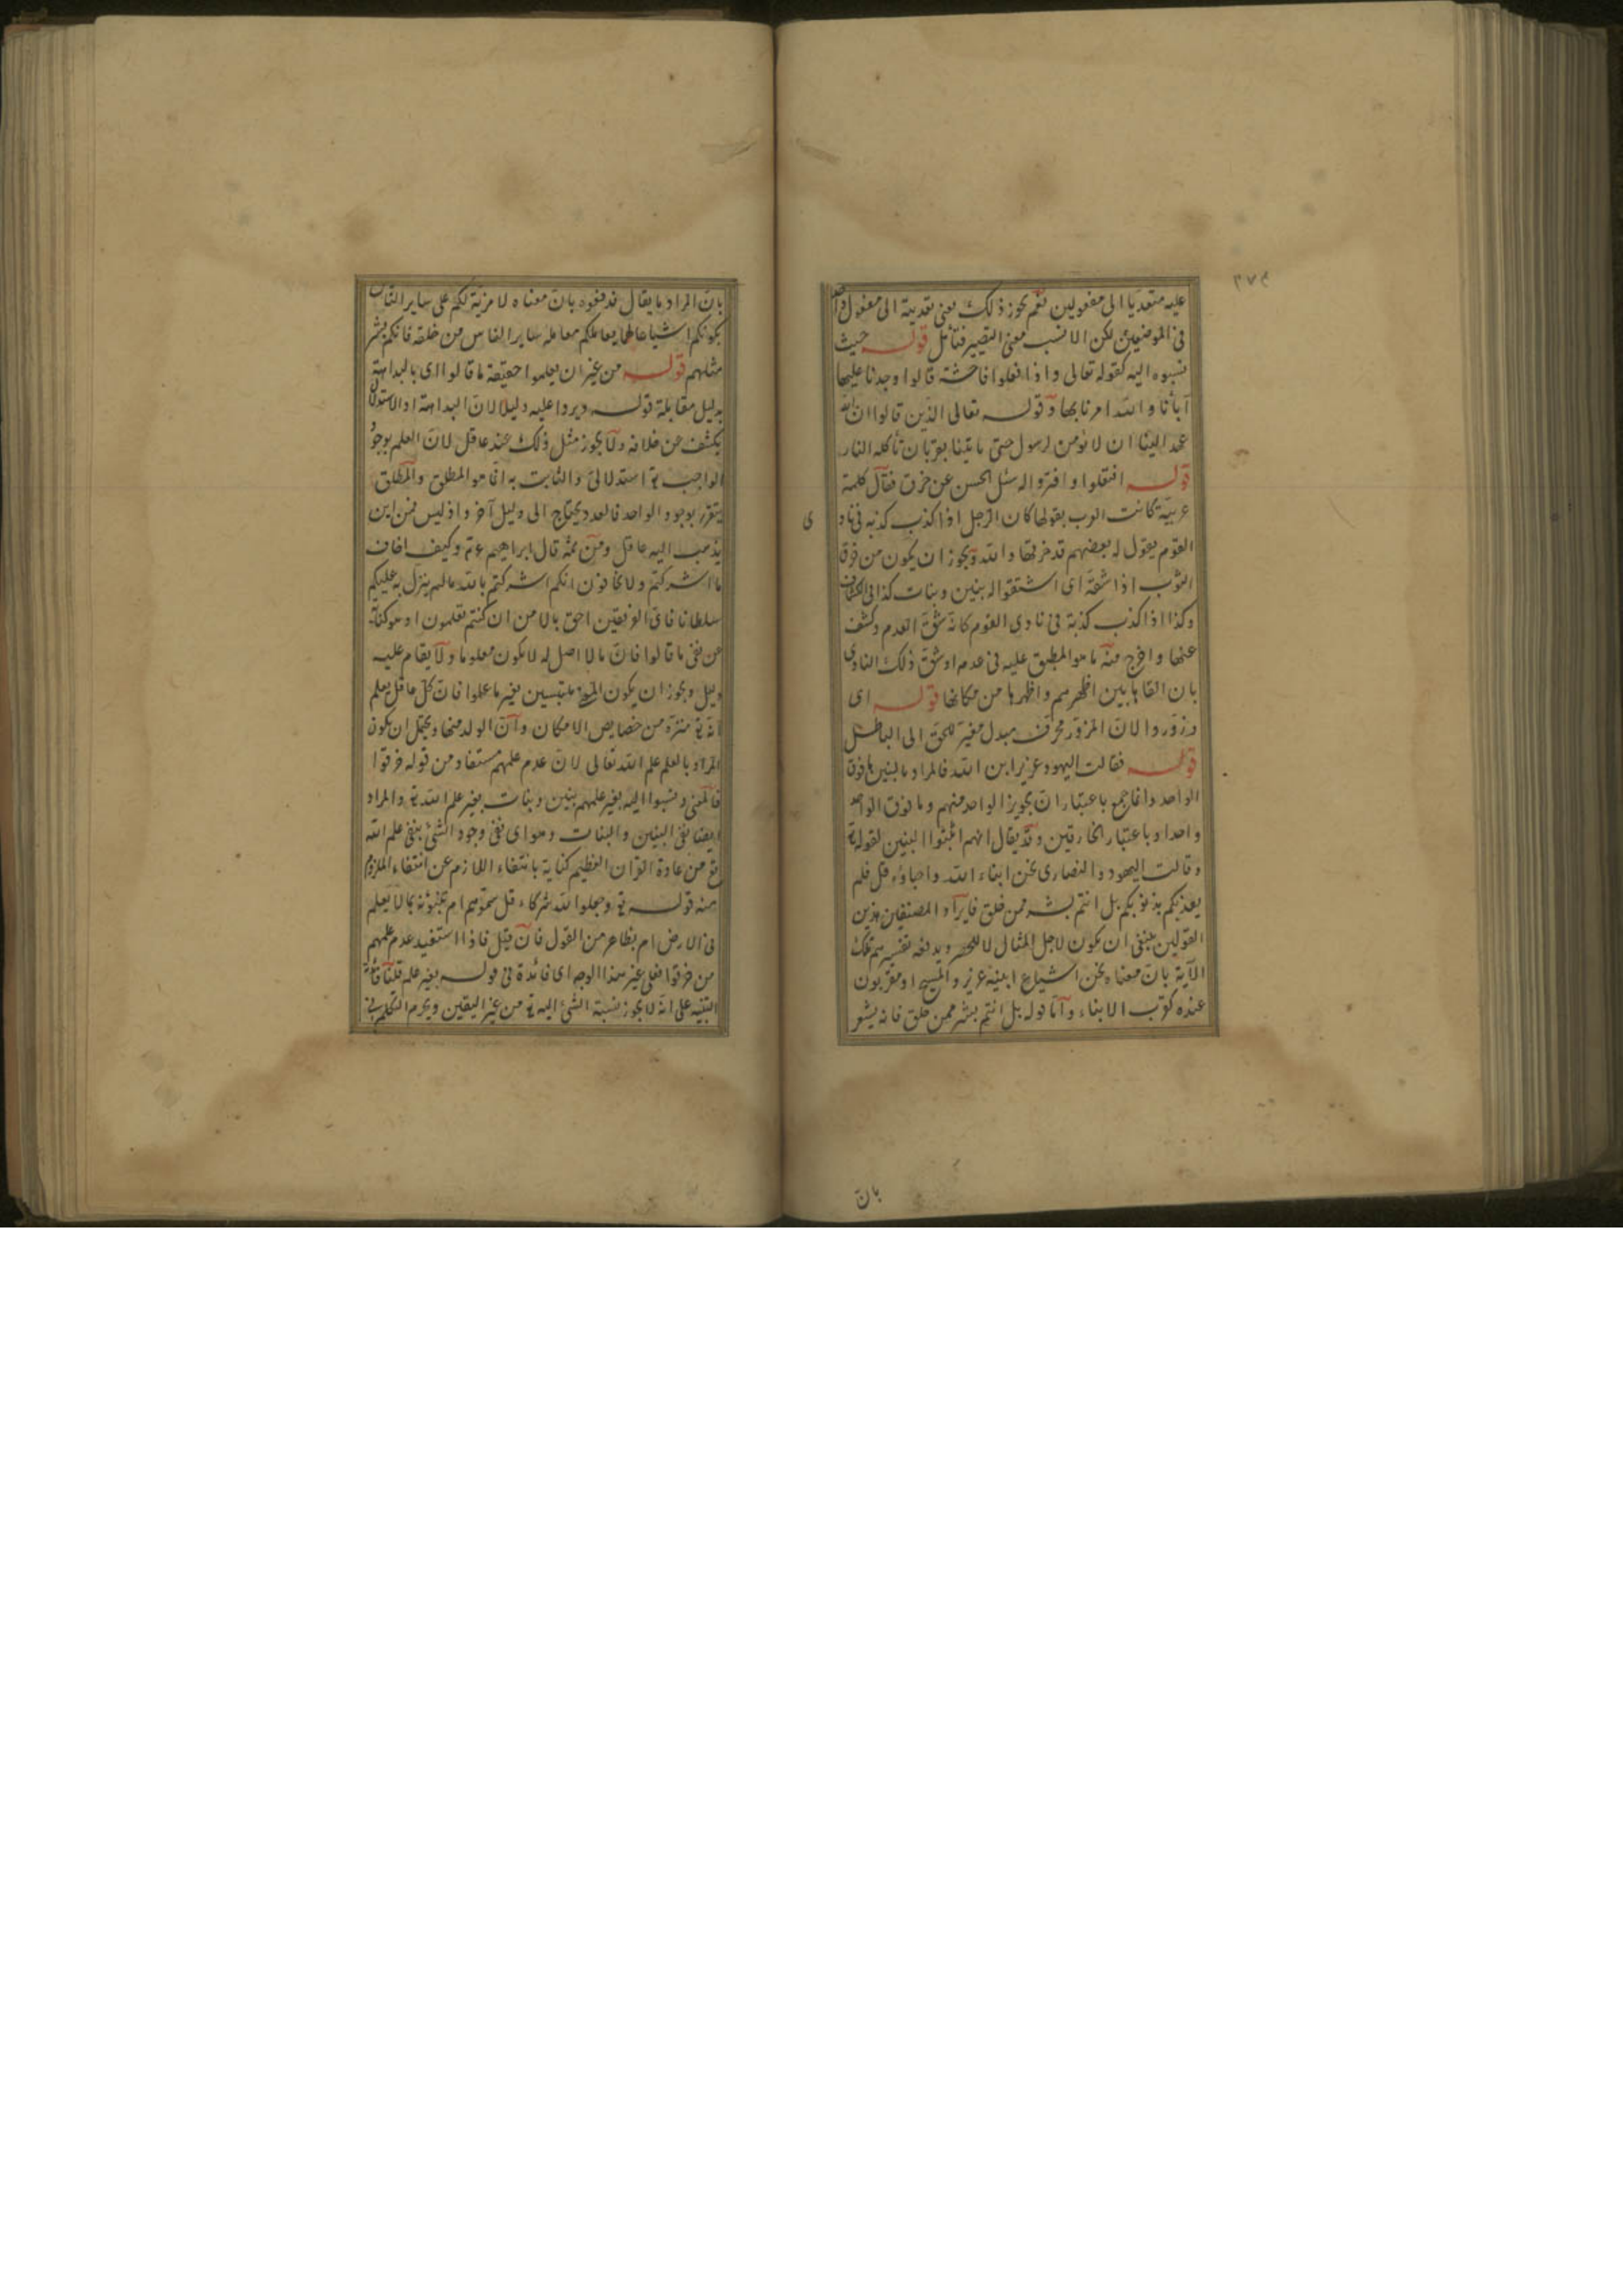 ٢٧٤
عليه متعديا الى مفعولين نعم يجوز ذلك بمعنى تعديته الى مفعول واحد
فى الموضعين لكن الانسب معنى التصيير فتأمل قوله حيث
نسبوه اليه كقوله تعالى واذا فعلوا فاحشة قالوا وجدنا عليها
آبائنا والله امرنا بها وقوله تعالى الذين قالوا ان الله
عهد الينا ان لا نؤمن لرسول حتى ياتينا بقربان تأكله النار
قوله افتعلوا وافتروا له سئل الحسن عن خرق فقال كلمة
عربية كانت العرب يقولها كان الرجل اذا كذب كذبه فى ناد
ى
القوم يقول له بعضهم قد خرقها والله ويجوز ان يكون من خرق
الثوب اذا شقه اى اشتقوا له بنين وبنات كذا فى الكشاف
وكذا اذا كذب كذبة فى نادى القوم كانه شق العدم وكشف
عنها واخرج منه ما هو المطبق عليه فى عدم او شق ذلك النادى
بان القاها بين اظهرهم واظهرها من مكانها قوله اى
وزوروا لان المزور محرف مبدل مغير للحق الى الباطل
قوله فقالت اليهود عزير ابن الله فالمراد بالبنين ما فوق
الواحد وانما جمع باعتبار ان تجويز الواحد منهم وما فوق الواحد
واحد او باعتبار الخارقين وقد يقال انهم اثبتوا البنين لقوله تع
وقالت اليهود والنصارى نحن ابناء الله واحباؤه قل فلم
يعذبكم بذنوبكم بل انتم بشر ممن خلق فايراد المصنفين هذين
القولين ينبغى ان يكون لاجل المثال لا للحصر ويدفعه تفسيرهم تلك
الآية بان معناه نحن اشياع ابنيه عزير والمسيح او مقربون
عنده كقرب الابناء واما قوله بل انتم بشر ممن خلق فانه يشعر
بان
بان المراد ما يقال فدفعوه بان معناه لا مزية لكم على ساير الناس
بكونكم اشياعا لهما يعاملكم معاملة ساير الناس من خلقه فانكم بشر
مثلهم قوله من غير ان يعلموا حقيقة ما قالوا اى بالبداهة
بدليل مقابلة قوله ويروا عليه دليلا لان البداهة او الاستدلال
يكشف عن خلافه ولا يجوز مثل ذلك عند عاقل لان العلم بوجود
الواجب تع استدلالى والثابت به انما هو المطلق والمطلق
يتقرر بوجود الواحد فالعدد يحتاج الى دليل آخر واذ ليس فمن اين
يذهب اليه عاقل ومن ثمة قال ابراهيم عم وكيف اخاف
ما اشركتم ولا تخافون انكم اشركتم بالله ما لم ينزل به عليكم
سلطانا فاى الفريقين احق بالامن ان كنتم تعلمون او هو كناية
عن نفى ما قالوا فان ما لا اصل له لا يكون معلوما ولا يقام عليه
دليل ويجوز ان يكون المعنى ملتبسين بغير ما علموا فان كل عاقل يعلم
انه تع منزه من خصايص الامكان وان الولد منها ويحتمل ان يكون
المراد بالعلم علم الله تعالى لان عدم علمهم مستفاد من قوله خرقوا
فالمعنى ونسبوا اليه بغير علمهم بنين وبنات بغير علم الله تع والمراد
ايضا نفى البنين والبنات وهو اى نفى وجود الشئ بنفى علم الله
تع من عادة القران العظيم كناية بانتفاء اللازم عن انتفاء الملزوم
منه قوله تع وجعلوا لله شركاء قل سموهم ام تنبؤنه بما لا يعلم
فى الارض ام بظاهر من القول فان قيل فاذا استفيد عدم علمهم
من خرقوا فعلى غير هذا الوجه اى فائدة فى قوله بغير علم قلنا فائدة
التنبيه على انه لا يجوز نسبة الشئ اليه تع من غير اليقين ويحرم التكلم فى